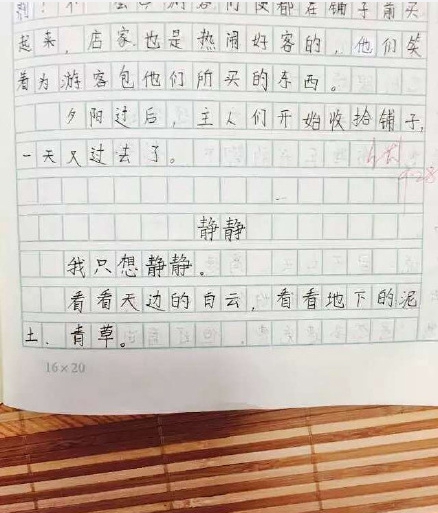 都在铺子前买
起来，店家也是热闹好客的，他们笑
着为游客包他们所买的东西。
夕阳过后，主人们开始收拾铺子，
一天又过去了。
静静
我只想静静。
看看天边的白云，看看地下的泥
土．青草。
16×20